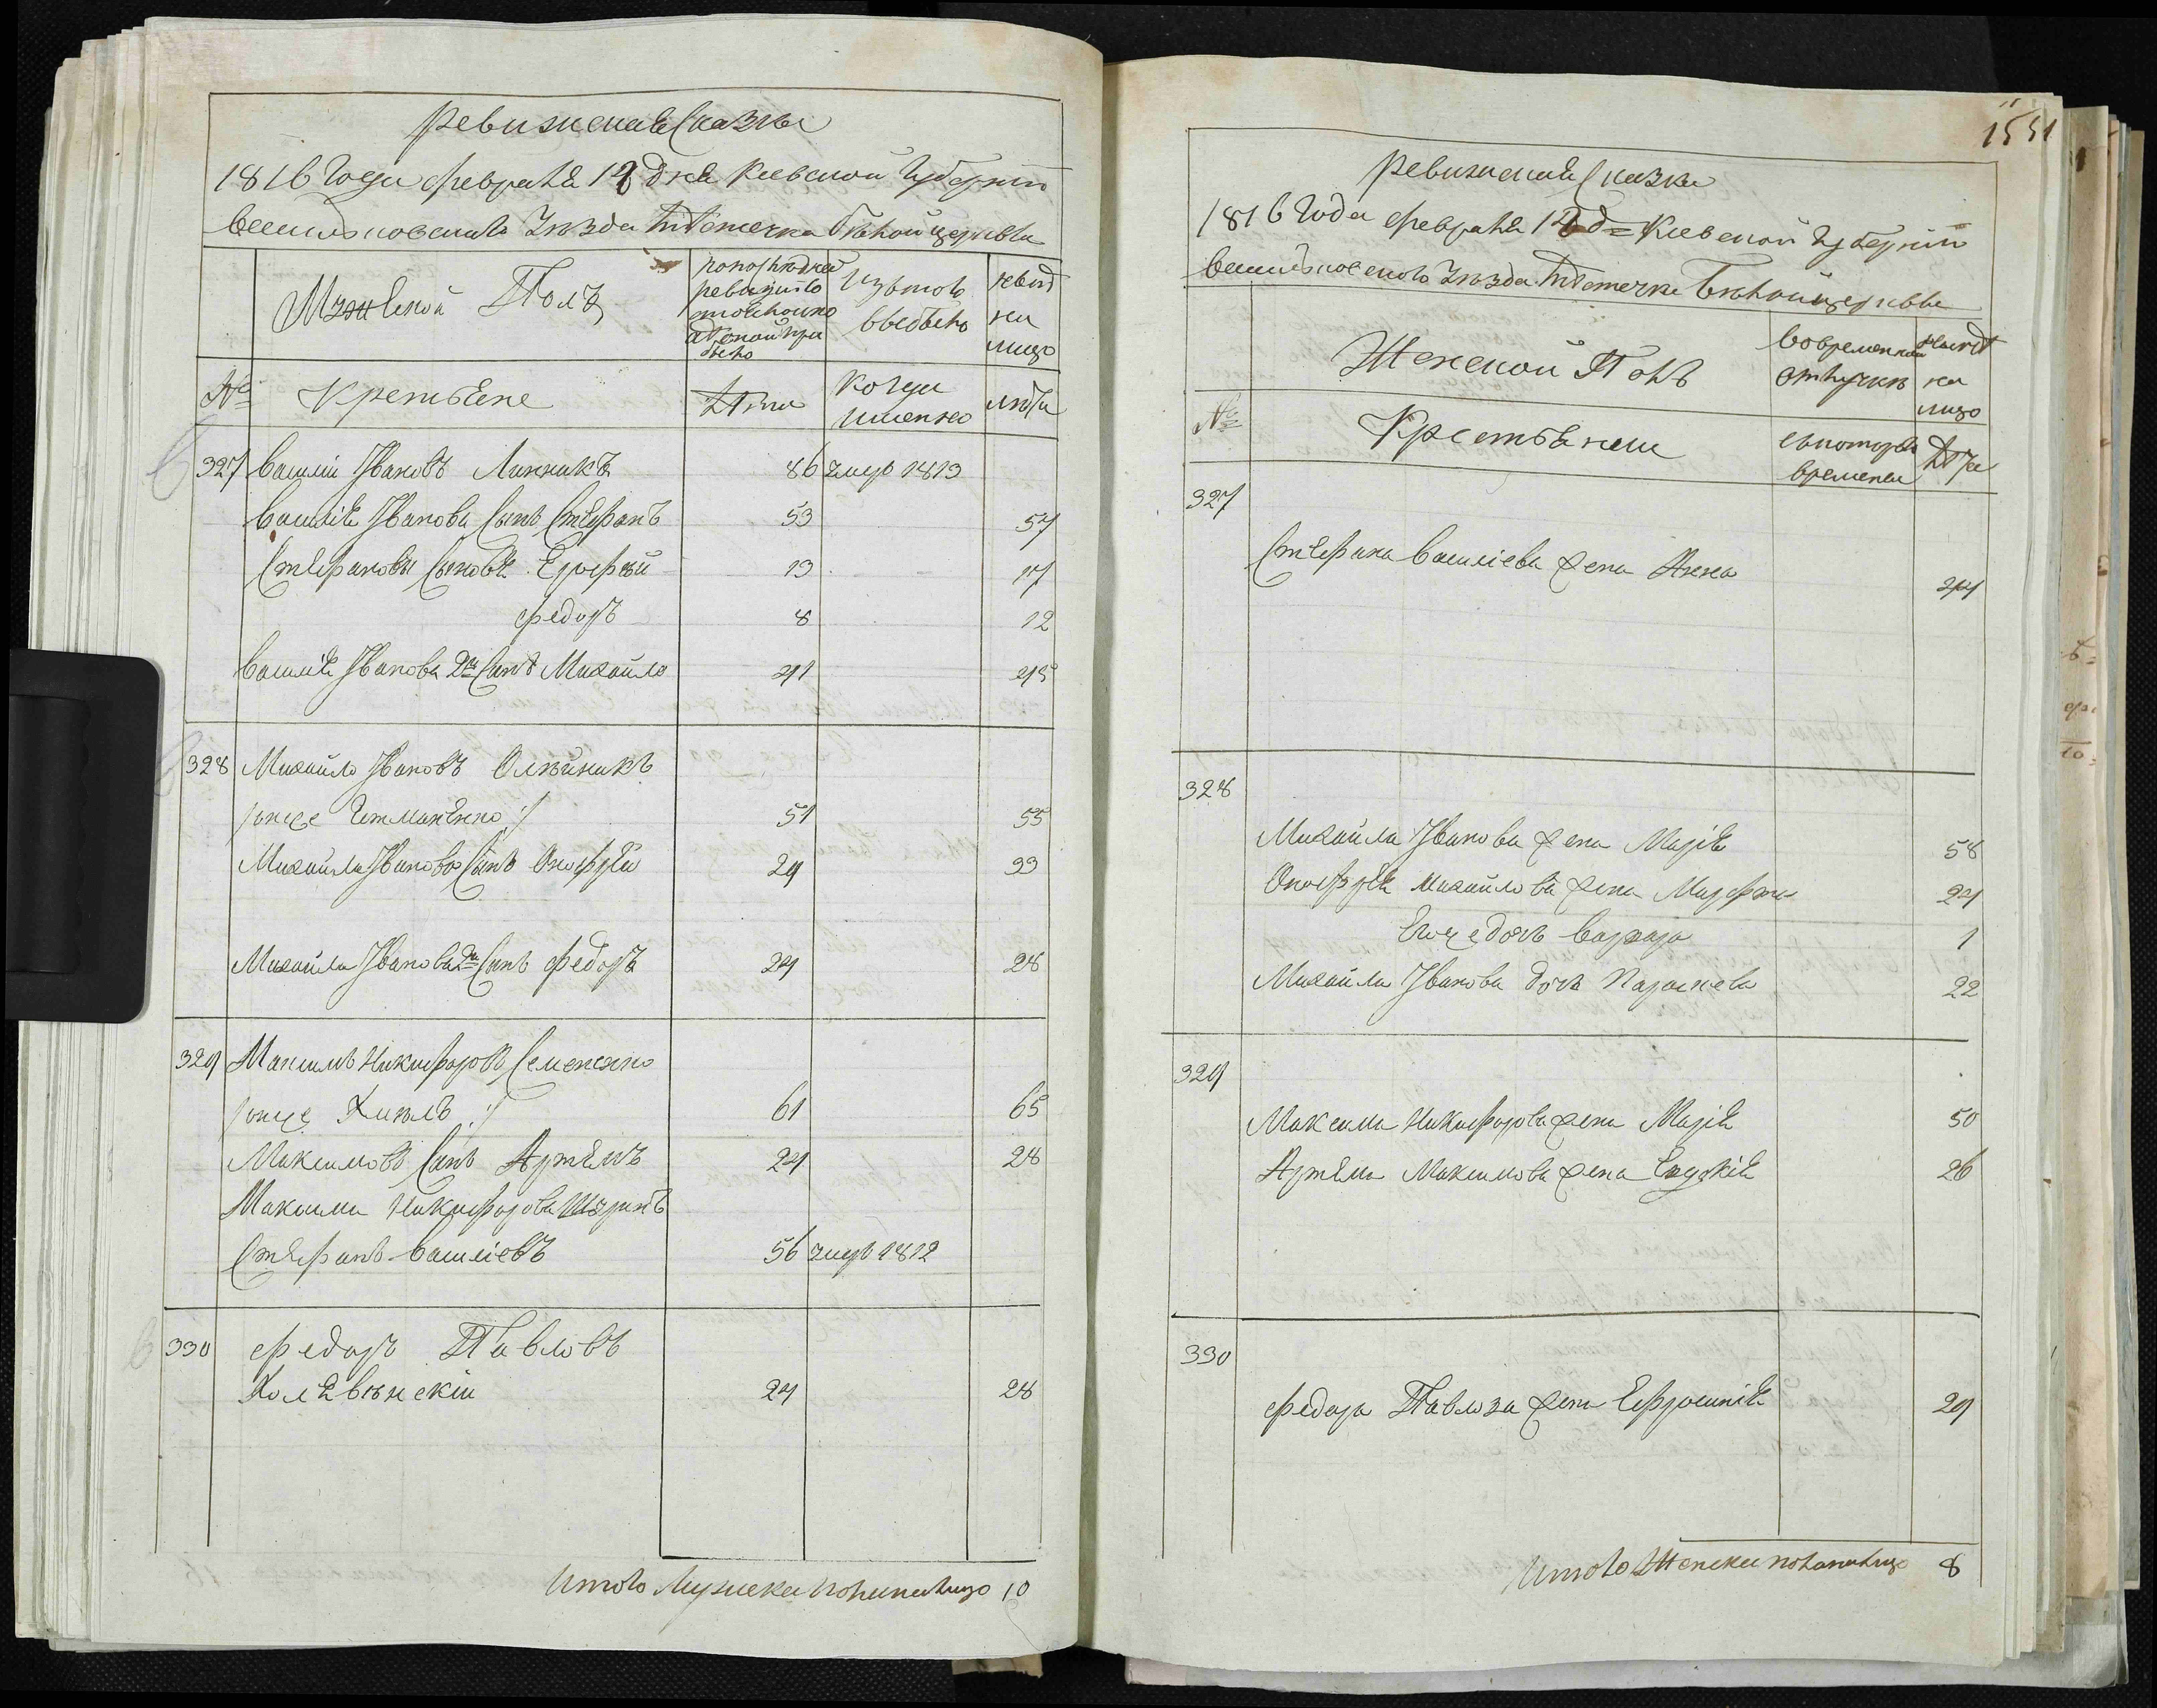 Ревижская Сказка
1816 Года февраля 12 дня Киевской Губернии
Васильковскаго Уезда Местечка Белой церквы
Мужеской Полъ
по последней
ревизии
состояло
Изъ того
выбыло
ныне
на
лицо
№
Крестьяне
Лета
Когда
именно
лета
327 Василий Ивановъ Линникъ 86 умеръ 1813
Василия Иванова Сынъ Стефанъ 53 57
Стефановы Сыновья Ерофей 13 17
Федоръ 8 12
Василия Иванова 2й Сынъ Михайло 41 45
328 Михайло Ивановъ Олейникъ
онже Гетманенко 51 55
Михайла Иванова Сынъ Онофрей 29 33
Михайла Иванова 2й Сынъ Федоръ 24 28
329 Максимъ Никифоровъ Семененко
онже Хизлъ 61 65
Максимовъ Сынъ Артемъ 24 28
Максима Никифорова Шуринъ
Стефанъ Василіевъ 56 умеръ 1812
330 Федоръ Павловъ
Холевинскій 24 28
Итого Мужеска пола налицо 10
1551
Ревижская Сказка
1816 Года февраля 12 д= Киевской Губернии
Васильковскаго Уезда Местечка Белой церквы
Женской Полъ
Во временной
отлучке
ныне
на
лицо
№
Крестьянки
съ котораго
времени
Лета
327
Стефана Василіева жена Анна 44
328
Михайла Иванова жена Марія 58
Онофрія Михайлова жена Марфа 24
Егоже дочь Варвара 1
Михайла Иванова дочь Параскева 22
329
Максима Никифорова жена Марія 50
Артема Максимова жена Евдокія 26
330
Федора Павлова жена Ефросинія 29
Итого Женска пола налицо 8